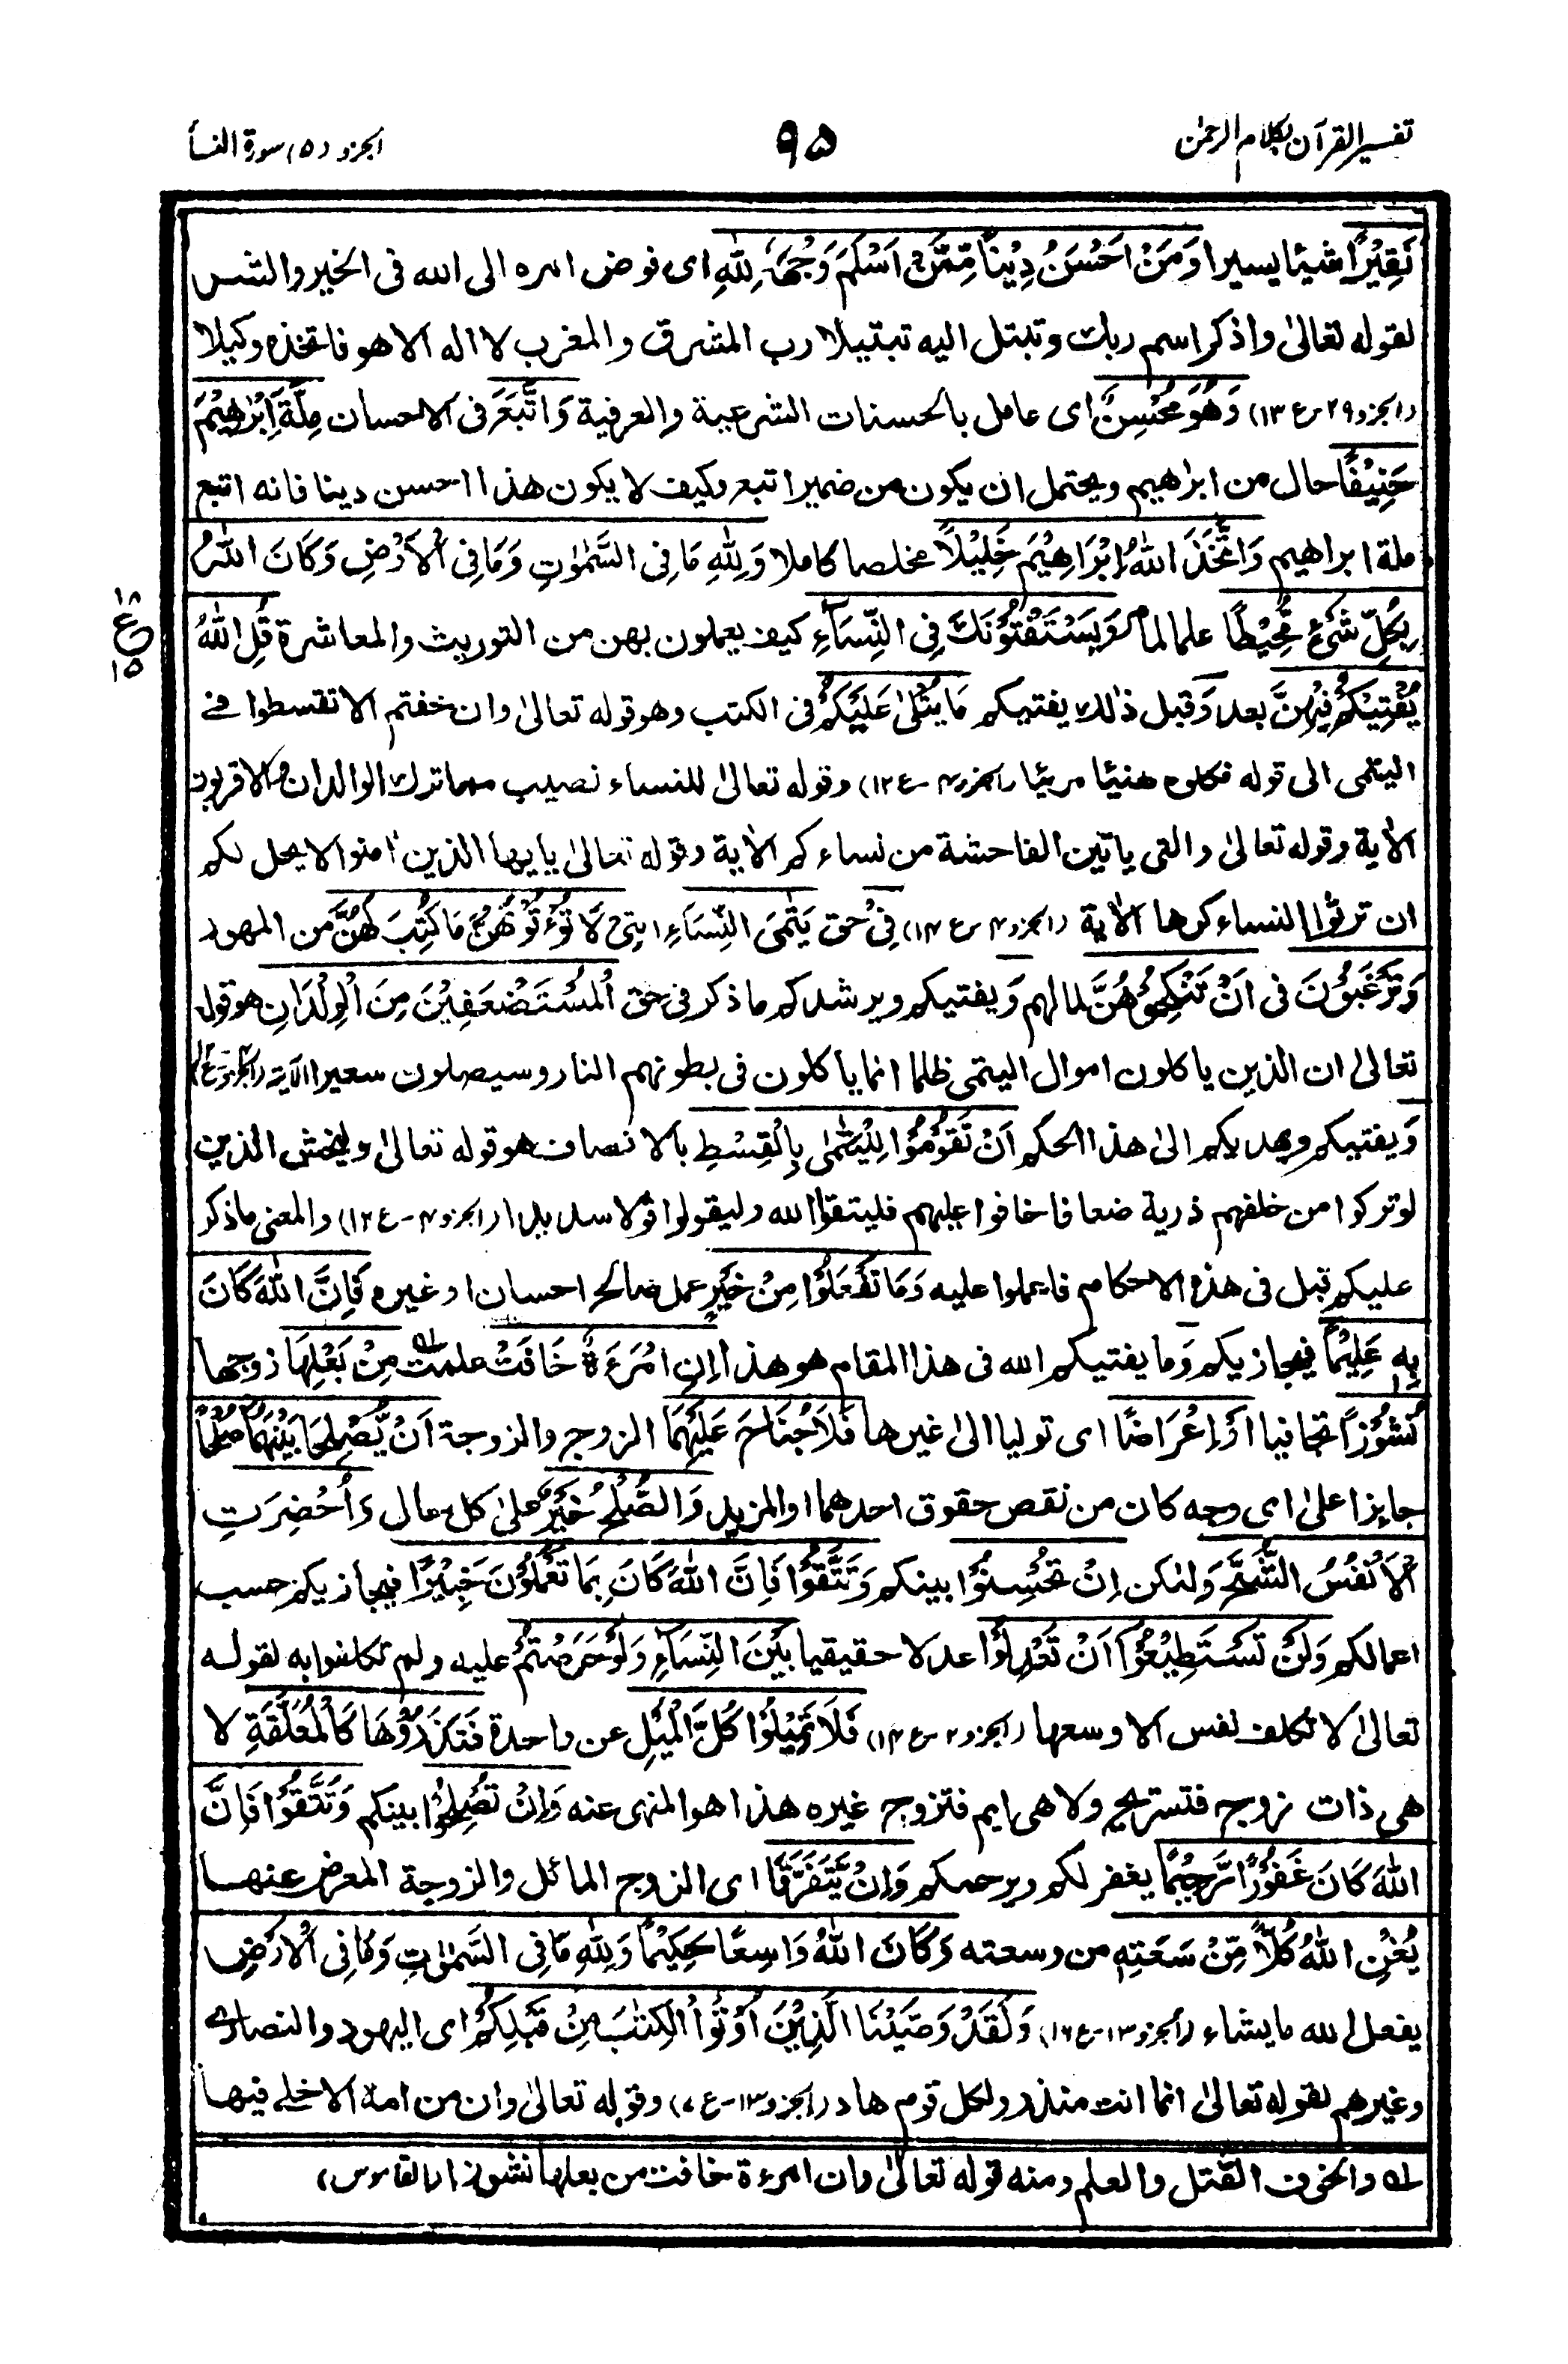 تفسير القرآن بكلام الرحمٰن
٩٥
الجزو (٥) سورة النسأ
نَقِيْرًا شيئا يسيرا وَمَنْ اَحْسَنُ دِيْنًا مِّمَّنْ اَسْلَمَ وَجْهَهٗ لِلّٰهِ اى فوض امره الى الله فى الخير والشس
لقوله تعالىٰ واذكر اسم ربك وتبتل اليه تبتيلا رب المشرق والمغرب لا اله الا هو فاتخذه وكيلا
(الجزو ٢٩ ـ ع ١٣) وَهُوَ مُحْسِنٌ اى عامل بالحسنات الشرعية والعرفية وَاتَّبَعَ فى الاحسان مِلَّةَ اِبْرٰهِيْمَ
حَنِيْفًا حال من ابراهيم ويحتمل ان يكون من ضمير اتبع وكيف لا يكون هذا احسن دينا فانه اتبع
ملة ابراهيم وَاتَّخَذَ اللّٰهُ اِبْرَاهِيْمَ خَلِيْلًا مخلصا كاملا وَلِلّٰهِ مَا فِى السَّمٰوٰتِ وَمَا فِى الْاَرْضِ وَكَانَ اللّٰهُ
بِكُلِّ شَىْءٍ مُّحِيْطًا علما لما وَيَسْتَفْتُوْنَكَ فِى النِّسَآءِ كيف يعملون بهن من التوريث والمعاشرة قُلِ اللّٰهُ
١٨
ع
١٥
يُفْتِيْكُمْ فِيْهِنَّ بعد وَقبل ذٰلك يفتيكم مَا يُتْلٰى عَلَيْكُمْ فى الكتب وهو قوله تعالىٰ وان خفتم الا تقسطوا فے
اليتٰمى الى قوله فكلوه هنيئا مريئا (الجزو ٤ ـ ع ١٢) وقوله تعالىٰ للنساء نصيب مما ترك الوالدان والاقربون
الاٰية وقوله تعالىٰ والتى ياتين الفاحشة من نساءكم الاٰية وقوله تعالىٰ يايها الذين اٰمنوا لا يحل لكم
ان ترثوا النساء كرها الاٰية (الجزو ٤ ـ ع ١٤) فِىْ حق يَتٰمَى النِّسَآءِ الّٰتِىْ لَا تُؤْتُوْنَهُنَّ مَا كُتِبَ لَهُنَّ من المهور
وَتَرْغَبُوْنَ فى اَنْ تَنْكِحُوْهُنَّ لمالهم وَيفتيكم ويرشدكم ما ذكر فى حق الْمُسْتَضْعَفِيْنَ مِنَ الْوِلْدَانِ هو قوله
تعالىٰ ان الذين ياكلون اموال اليتمى ظلما انما ياكلون فى بطونهم النار وسيصلون سعيرا الآية
وَيفتيكم ويهديكم الىٰ هذا الحكم اَنْ تَقُوْمُوْا لِلْيَتٰمٰى بِالْقِسْطِ بالانصاف هو قوله تعالىٰ وليخش الذين
لو تركوا من خلفهم ذرية ضعافا خافوا عليهم فليتقوا الله وليقولوا قولا سديدا (الجزو ٤ ـ ع ١٢) والمعنى ما ذكر
عليكم قبل فى هذه الاحكام فاعملوا عليه وَمَا تَفْعَلُوْا مِنْ خَيْرٍ عمل صالح احسان او غيره فَاِنَّ اللّٰهَ كَانَ
بِهٖ عَلِيْمًا فيجازيكم وَما يفتيكم الله فى هذا المقام هو هذا اِنِ امْرَءَةٌ خَافَتْ علمت ؎١ مِنْ بَعْلِهَا زوجها
نُشُوْزًا تجافيا اَوْ اِعْرَاضًا اى توليا الىٰ غيرها فَلَا جُنَاحَ عَلَيْهِمَا الزوج والزوجة اَنْ يُّصْلِحَا بَيْنَهُمَا صُلْحًا
جايزا علىٰ اى وجه كان من نقص حقوق احدهما او المزيد وَالصُّلْحُ خَيْرٌ علىٰ كل حال وَاُحْضِرَتِ
الْاَنْفُسُ الشُّحَّ وَلٰكن اِنْ تُحْسِنُوْا بينكم وَتَتَّقُوْا فَاِنَّ اللّٰهَ كَانَ بِمَا تَعْمَلُوْنَ خَبِيْرًا فيجازيكم حسب
اعمالكم وَلَنْ تَسْتَطِيْعُوْٓا اَنْ تَعْدِلُوْا عدلا حقيقيا بَيْنَ النِّسَآءِ وَلَوْ حَرَصْتُمْ عليه ولم تكلفوا به لقوله
تعالىٰ لا تكلف نفس الا وسعها (الجزو ٢ ـ ع ١٤) فَلَا تَمِيْلُوْا كُلَّ الْمَيْلِ عن واحدة فَتَذَرُوْهَا كَالْمُعَلَّقَةِ لا
هى ذات زوج فتستريح ولا هى ايم فتزوج غيره هذا هو المنهى عنه وَاِنْ تُصْلِحُوْا بينكم وَتَتَّقُوْا فَاِنَّ
اللّٰهَ كَانَ غَفُوْرًا رَّحِيْمًا يغفر لكم ويرحمكم وَاِنْ يَّتَفَرَّقَا اى الزوج المائل والزوجة المعرض عنها
يُغْنِ اللّٰهُ كُلًّا مِّنْ سَعَتِهٖ من وسعته وَكَانَ اللّٰهُ وَاسِعًا حَكِيْمًا وَلِلّٰهِ مَا فِى السَّمٰوٰتِ وَمَا فِى الْاَرْضِ
يفعل الله ما يشاء (الجزو ١٣ ـ ع ١٦) وَلَقَدْ وَصَّيْنَا الَّذِيْنَ اُوْتُوا الْكِتٰبَ مِنْ قَبْلِكُمْ اى اليهود والنصارے
وغيرهم لقوله تعالىٰ انما انت منذر ولكل قوم هاد (الجزو ١٣ ـ ع ٧) وقوله تعالىٰ وان من امة الا خلے فيها
؎١ والخوف القتل والعلم ومنه قوله تعالىٰ وان امرءة خافت من بعلها نشوزا (القاموس)